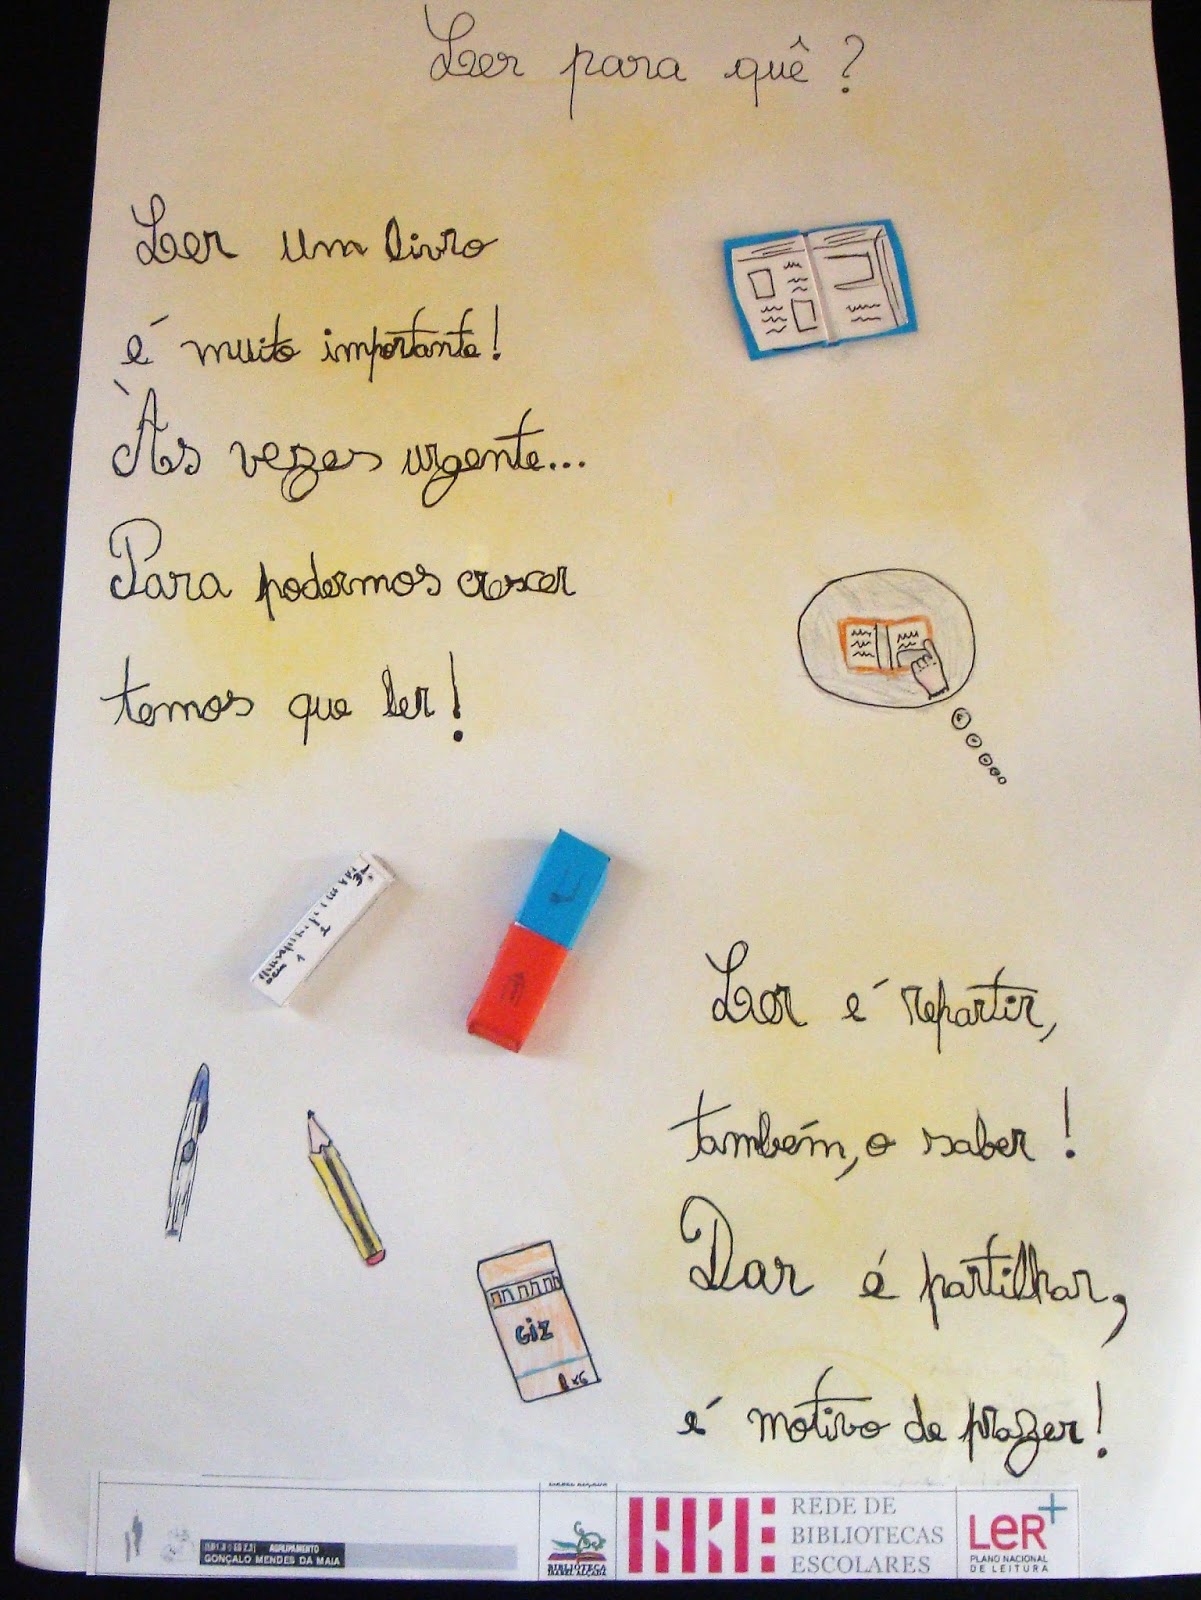 Ler para quê?
Ler um livro
é muito importante!
Às vezes urgente...
Para podermos crescer
temos que ler!
Ler é repartir,
também, o saber!
Dar é partilhar,
é motivo de prazer!
GIZ
x6
AGRUPAMENTO
GONÇALO MENDES DA MAIA
BIBLIOTECA
ISABEL ALÇADA
RBE
REDE DE
BIBLIOTECAS
ESCOLARES
LeR+
PLANO NACIONAL
DE LEITURA